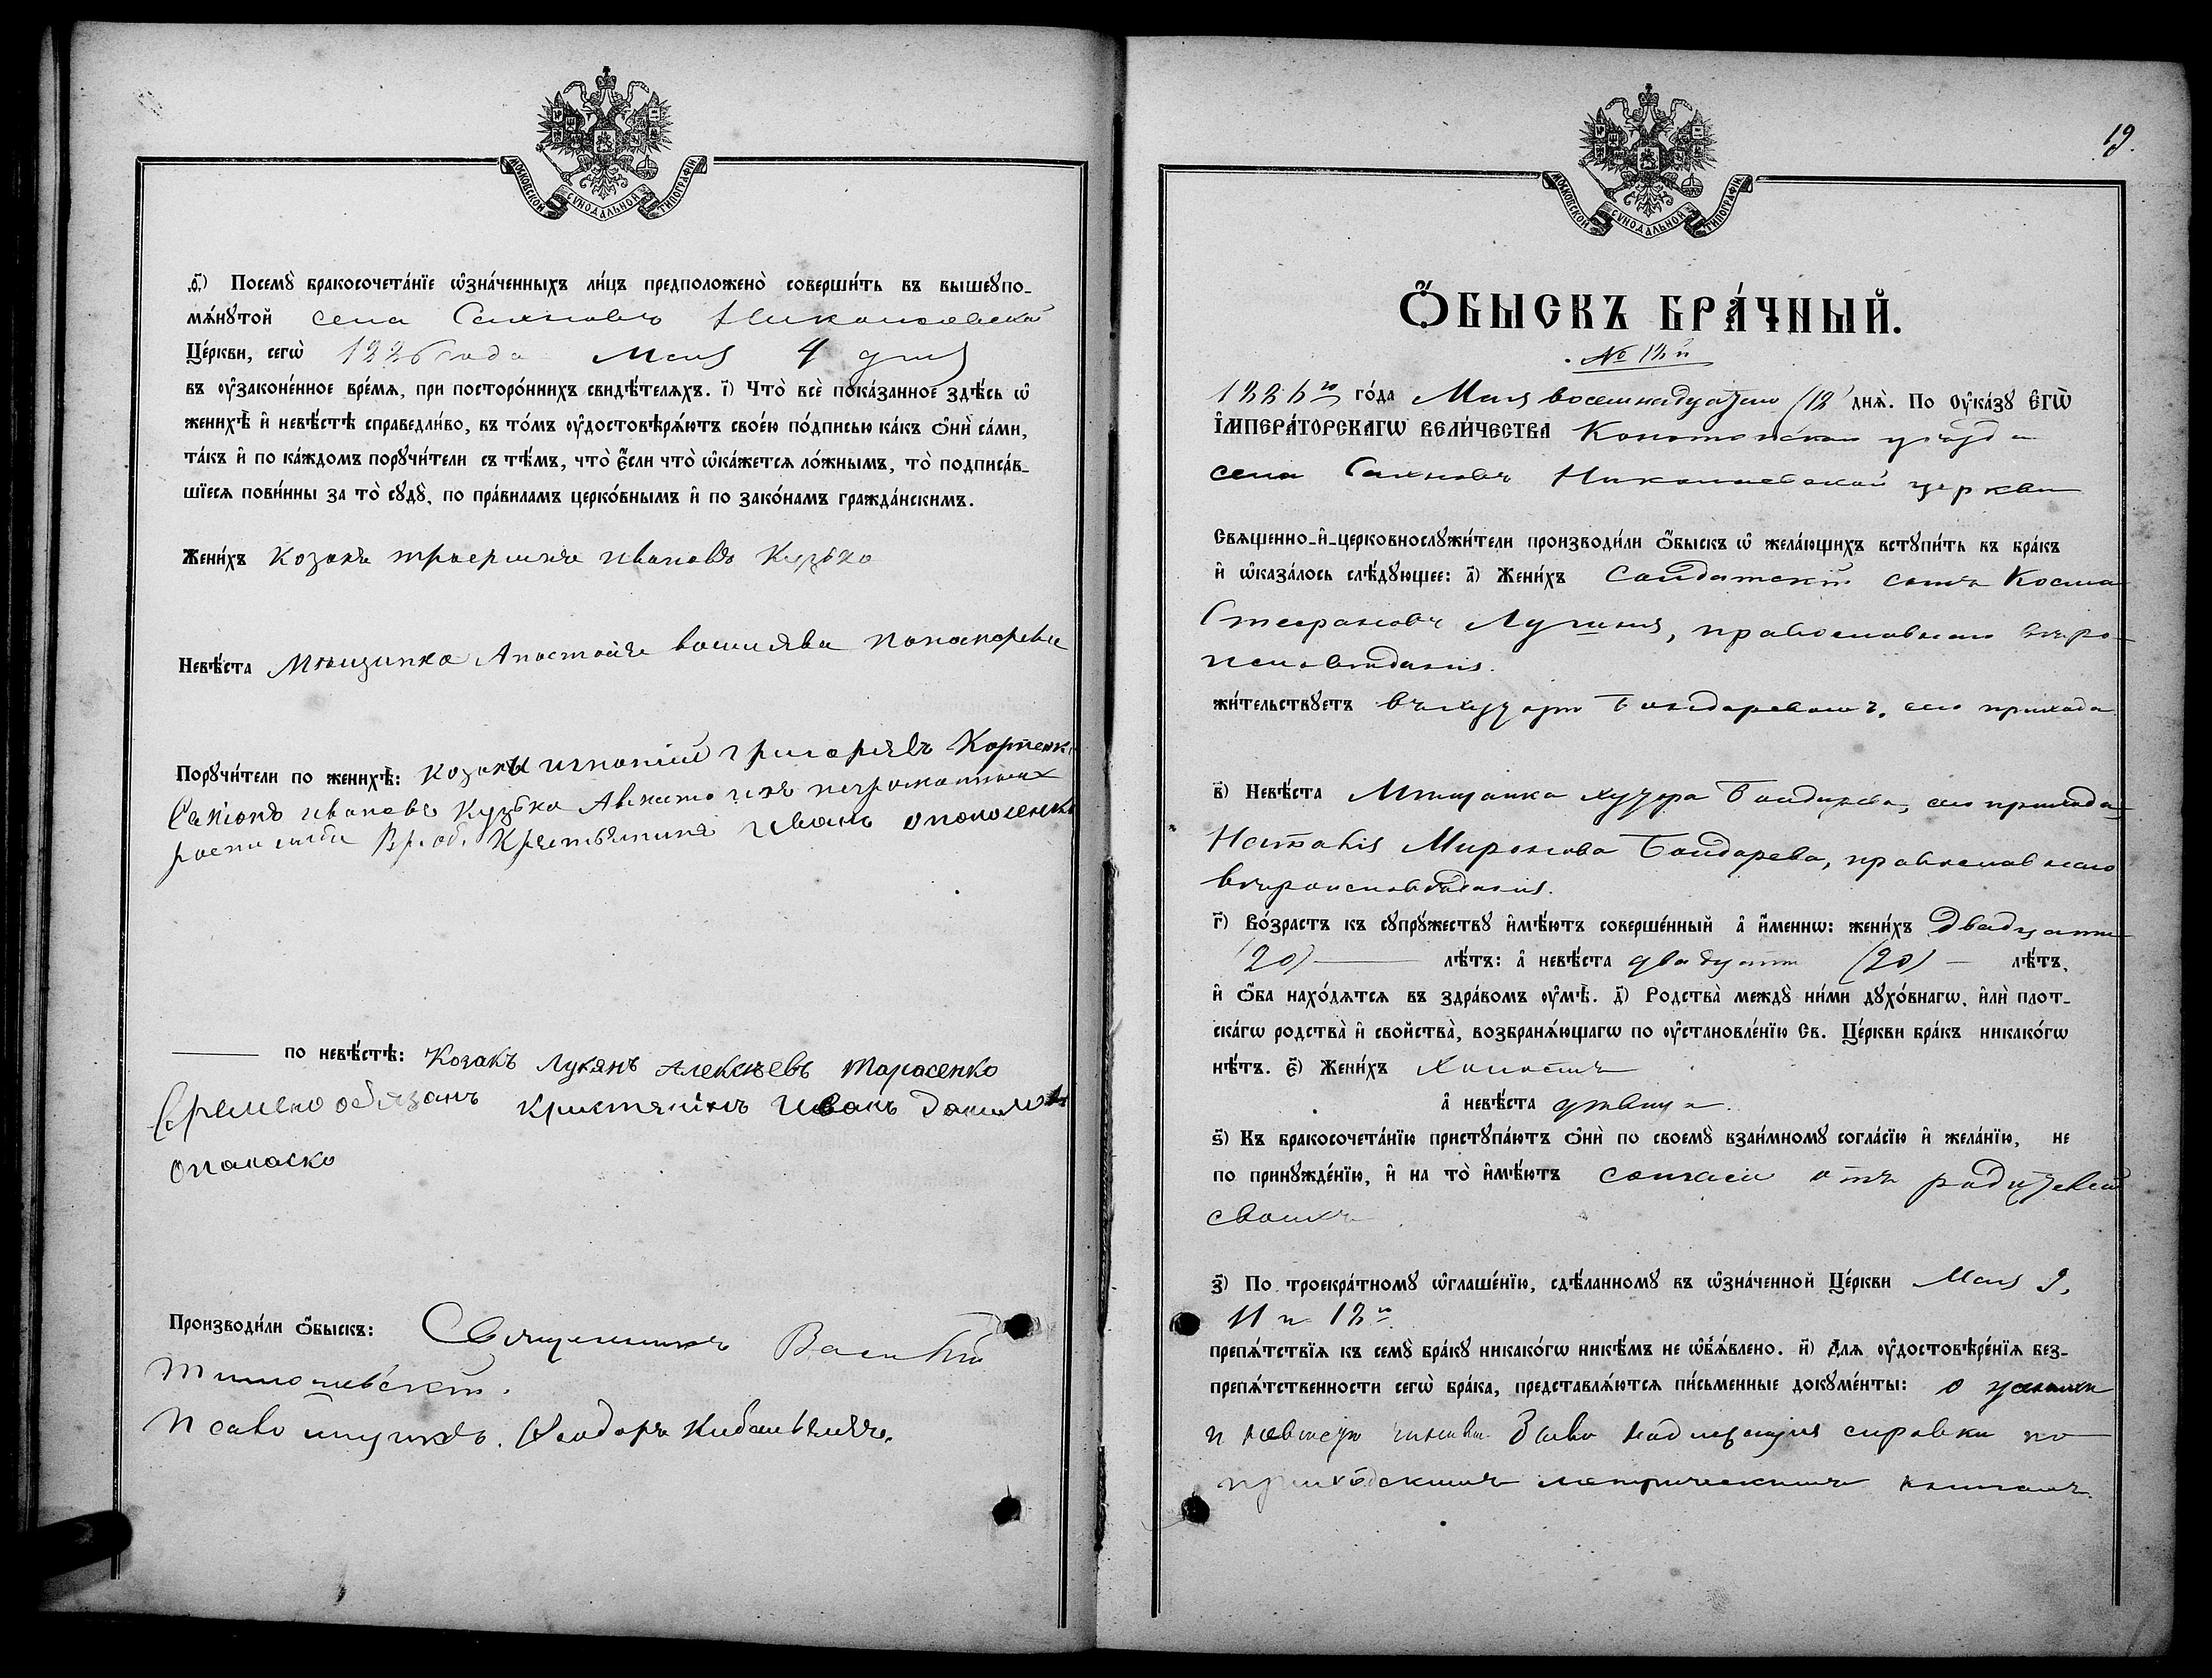 МОСКОВСКОЙ СѴНОДАЛЬНОЙ ТИПОГРАФІИ
д҃і) Посемꙋ̀ бракосочета́нїе ѡ҆зна́ченныхъ ли́цъ предположено̀ соверши́ть въ вышеꙋпо-
мѧ́нꙋтой села Сахновъ Николаевской
Це́ркви, сегѡ̀ 1886 года Мая 4 дня
въ ᲂу҆законе́нное вре́мѧ, при посторо́ннихъ свидѣ́телѧхъ. і҃) Что̀ всѐ пока́занное здѣ́сь ѡ҆
женихѣ̀ и҆ невѣ́стѣ справедли́во, въ то́мъ ᲂу҆достовѣрѧ́ютъ свое́ю по́дписью ка́къ ѻ҆нѝ са́ми,
та́къ и҆ по ка́ждомъ порꙋчи́тели съ тѣ́мъ, что̀ є҆́сли что̀ ѡ҆ка́жетсѧ ло́жнымъ, то̀ подписа́в-
шїесѧ пови́нны за то̀ сꙋдꙋ̀, по пра́виламъ церко́внымъ и҆ по зако́намъ гражда́нскимъ.
Жени́хъ козакъ ивановъ Кузько
Невѣ́ста Мѣщанка
Порꙋчи́тели по женихѣ̀: козаки игнатій григоріевъ
ивановъ Кузько
Иванъ
по невѣ́стѣ: Козакъ Лукянъ Алексѣевъ Тарасенко
Временообязанъ Иванъ
Опанаско
Производи́ли ѻ҆́быскъ: Священникъ Василій
Псаломщикъ Ѳеодоръ
19.
МОСКОВСКОЙ СѴНОДАЛЬНОЙ ТИПОГРАФІИ
Ѻ҆́БЫСКЪ БРА́ЧНЫЙ.
№ 18й
1886го го́да Мая восемнадцатаго (18) днѧ̀. По ᲂу҆ка́зꙋ є҆гѡ̀
и҆мпера́торскагѡ вели́чества Конотопскаго уѣзда
села Сахновъ Николаевской церкви
Свѧщенно-и҆-церковнослꙋжи́тели производи́ли ѻ҆́быскъ ѡ҆ жела́ющихъ встꙋпи́ть въ бра́къ
и҆ ѡ҆каза́лось слѣ́дꙋющее: а҃) Жени́хъ Солдатскій сынъ Косма
Стефановъ православнаго вѣро-
исповѣданія.
жи́тельствꙋетъ въ хуторѣ Бондаревомъ, сего прихода
в҃) Невѣ́ста Мѣщанка хутора Бондарева, сего прихода,
Наталія Миронова Бондарева, православнаго
вѣроисповѣданія.
г҃) Во́зрастъ къ сꙋпрꙋ́жествꙋ и҆мѣ́ютъ соверше́нный а҆ и҆́меннѡ: жени́хъ двадцати
(20) лѣ́тъ: а҆ невѣ́ста двадцати (20) лѣ́тъ,
и҆ ѻ҆́ба нахо́дѧтсѧ въ здра́вомъ ᲂу҆мѣ̀. д҃) Родства̀ междꙋ̀ ни́ми дꙋхо́внагѡ, и҆лѝ плот-
ска́гѡ родства̀ и҆ свойства̀, возбранѧ́ющагѡ по ᲂу҆становле́нїю Св. Це́ркви бра́къ никако́гѡ
нѣ́тъ. є҃) Жени́хъ холостъ
а҆ невѣ́ста дѣвица.
ѕ҃) Къ бракосочета́нїю пристꙋпа́ютъ ѻ҆нѝ по своемꙋ̀ взаи́мномꙋ согла́сїю и҆ жела́нїю, не
по принꙋжде́нїю, и҆ на то̀ и҆мѣ́ютъ согласіе отъ родителей
своихъ
з҃) По троекра́тномꙋ ѡ҆глаше́нїю, сдѣ́ланномꙋ въ ѡ҆зна́ченной Це́ркви Мая 9,
11 и 18го
препѧ́тствїѧ къ семꙋ̀ бра́кꙋ никако́гѡ никѣ́мъ не ѡ҆б̾ѧ́влено. и҃) Длѧ ᲂу҆достовѣре́нїѧ без-
препѧ́тственности сегѡ̀ бра́ка, представлѧ́ютсѧ пи́сьменные докꙋме́нты: о женихѣ
и невѣстѣ надлежащія справки по
приходскимъ метрическимъ книгамъ.